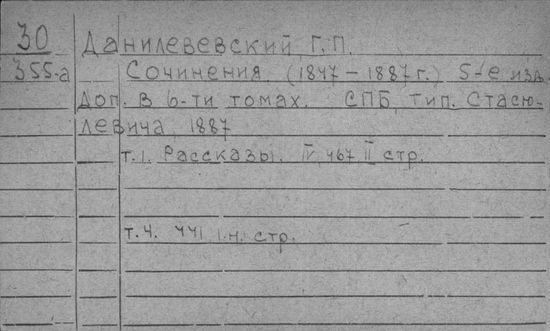 30 Данилевевский Г.П.
355-а Сочинения. (1847 – 1887 г.) 5-е изд.
доп. В 6-ти томах. СПБ, тип. Стасю-
левича, 1887
т.1. Рассказы. IV, 467 II стр.
т.4. 441, 1 н. стр.